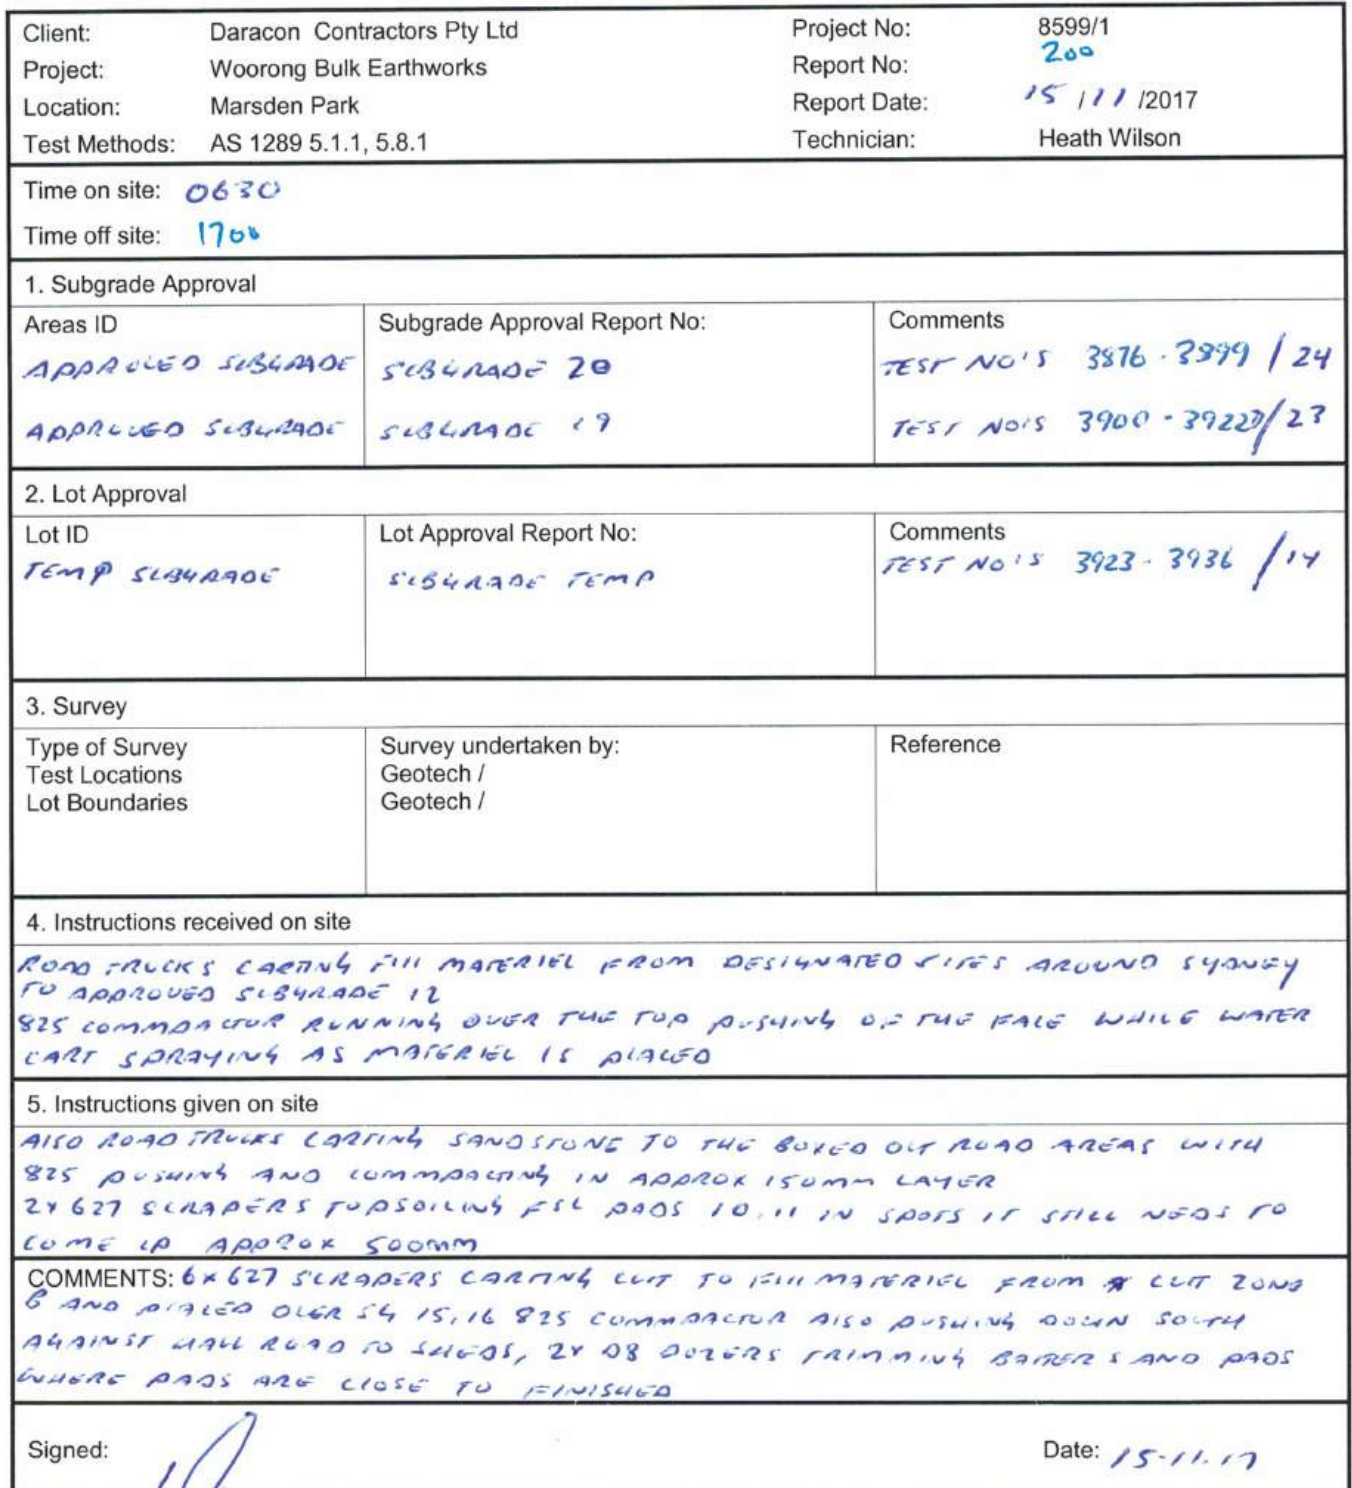 Client: Daracon Contractors Pty Ltd Project No: 8599/1
Project: Woorong Bulk Earthworks Report No: 200
Location: Marsden Park Report Date: 15 / 11 /2017
Test Methods: AS 1289 5.1.1, 5.8.1 Technician: Heath Wilson
Time on site: 0630
Time off site: 1700
1. Subgrade Approval
Areas ID Subgrade Approval Report No: Comments
APPROVED SUBGRADE SUBGRADE 20 TEST NO'S 3876 - 3899 / 24
APPROVED SUBGRADE SUBGRADE 19 TEST NO'S 3900 - 3922 / 23
2. Lot Approval
Lot ID Lot Approval Report No: Comments
TEMP SUBGRADE SUBGRADE TEMP TEST NO'S 3923 - 3936 / 14
3. Survey
Type of Survey Survey undertaken by: Reference
Test Locations Geotech /
Lot Boundaries Geotech /
4. Instructions received on site
ROAD TRUCKS CARTING FILL MATERIEL FROM DESIGNATED SITES AROUND SYDNEY
TO APPROVED SUBGRADE 12
825 COMMPACTOR RUNNING OVER THE TOP PUSHING OF THE FACE WHILE WATER
CART SPRAYING AS MATERIEL IS PLACED
5. Instructions given on site
ALSO ROAD TRUCKS CARTING SANDSTONE TO THE BOXED OUT ROAD AREAS WITH
825 PUSHING AND COMMPACTING IN APPROX 150MM LAYER
2x 627 SCRAPERS TOPSOILING FSL PADS 10.11 IN SPOTS IT STILL NEEDS TO
COME UP APPROX 500MM
COMMENTS: 6x 627 SCRAPERS CARTING CUT TO FILL MATERIEL FROM CUT ZONE
6 AND PLACED OVER SG 15,16 825 COMMPACTOR ALSO PUSHING DOWN SOUTH
AGAINST HALL ROAD TO SHEDS, 2x D8 DOZERS TRIMMING BATTERS AND PADS
WHERE PADS ARE CLOSE TO FINISHED
Signed: Date: 15-11.17